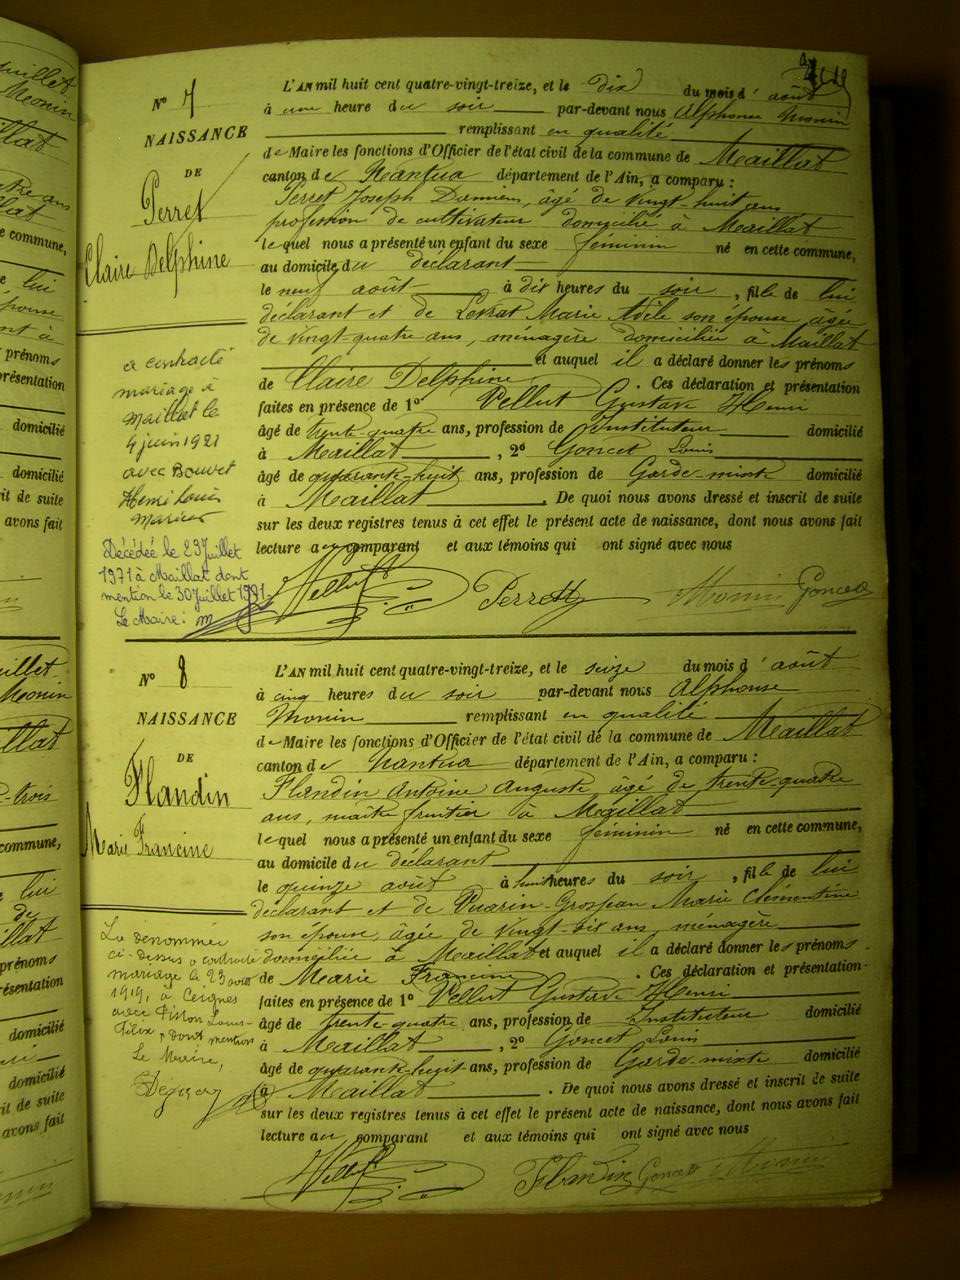 N° 7
NAISSANCE
DE
Perret
Claire Delphine
a contracté
mariage à
Maillat le
4 juin 1921
avec Bouvet
Henri Louis
Marius
Décédée le 23 Juillet
1971 à Maillat dont
mention le 30 Juillet 1971.
Le Maire:
L'AN mil huit cent quatre-vingt-treize, et le dix du mois d'août
à une heure du soir par-devant nous Alphonse Monin
remplissant en qualité
de Maire les fonctions d'Officier de l'état civil de la commune de Maillat
canton de Nantua département de l'Ain, a comparu :
Perret Joseph Damien, âgé de vingt huit ans
profession de cultivateur domicilié à Maillat
lequel nous a présenté un enfant du sexe féminin né en cette commune,
au domicile du déclarant
le neuf août à dix heures du soir, fille de lui
déclarant et de Levrat Marie Adèle son épouse âgée
de vingt-quatre ans, ménagère domiciliée à Maillat
et auquel il a déclaré donner les prénoms
de Claire Delphine. Ces déclaration et présentation
faites en présence de 1° Vellut Gustave Henri
âgé de trente-quatre ans, profession de Instituteur domicilié
à Maillat, 2° Goncet Louis
âgé de quarante-huit ans, profession de Garde-mixte domicilié
à Maillat. De quoi nous avons dressé et inscrit de suite
sur les deux registres tenus à cet effet le présent acte de naissance, dont nous avons fait
lecture au comparant et aux témoins qui ont signé avec nous
Vellut Perret Monin Goncet
N° 8
NAISSANCE
DE
Flandin
Marie Francine
La dénommée
ci-dessus a contracté
mariage le 23 avril
1919, à Ceignes
avec Pisson Louis-
Félix, dont mention
Le Maire,
L'AN mil huit cent quatre-vingt-treize, et le seize du mois d'août
à cinq heures du soir par-devant nous Alphonse
Monin remplissant en qualité
de Maire les fonctions d'Officier de l'état civil de la commune de Maillat
canton de Nantua département de l'Ain, a comparu :
Flandin Antoine Auguste âgé de trente-quatre
ans, maître fruitier à Maillat
lequel nous a présenté un enfant du sexe féminin né en cette commune,
au domicile du déclarant
le quinze août à huit heures du soir, fille de lui
déclarant et de Puarin-Grosjean Marie Clémentine
son épouse, âgée de vingt-six ans, ménagère
domiciliée à Maillat et auquel il a déclaré donner les prénoms
de Marie Francine. Ces déclaration et présentation
faites en présence de 1° Vellut Gustave Henri
âgé de trente-quatre ans, profession de Instituteur domicilié
à Maillat, 2° Goncet Louis
âgé de quarante-huit ans, profession de Garde-mixte domicilié
à Maillat. De quoi nous avons dressé et inscrit de suite
sur les deux registres tenus à cet effet le présent acte de naissance, dont nous avons fait
lecture au comparant et aux témoins qui ont signé avec nous
Vellut Flandin Goncet Monin